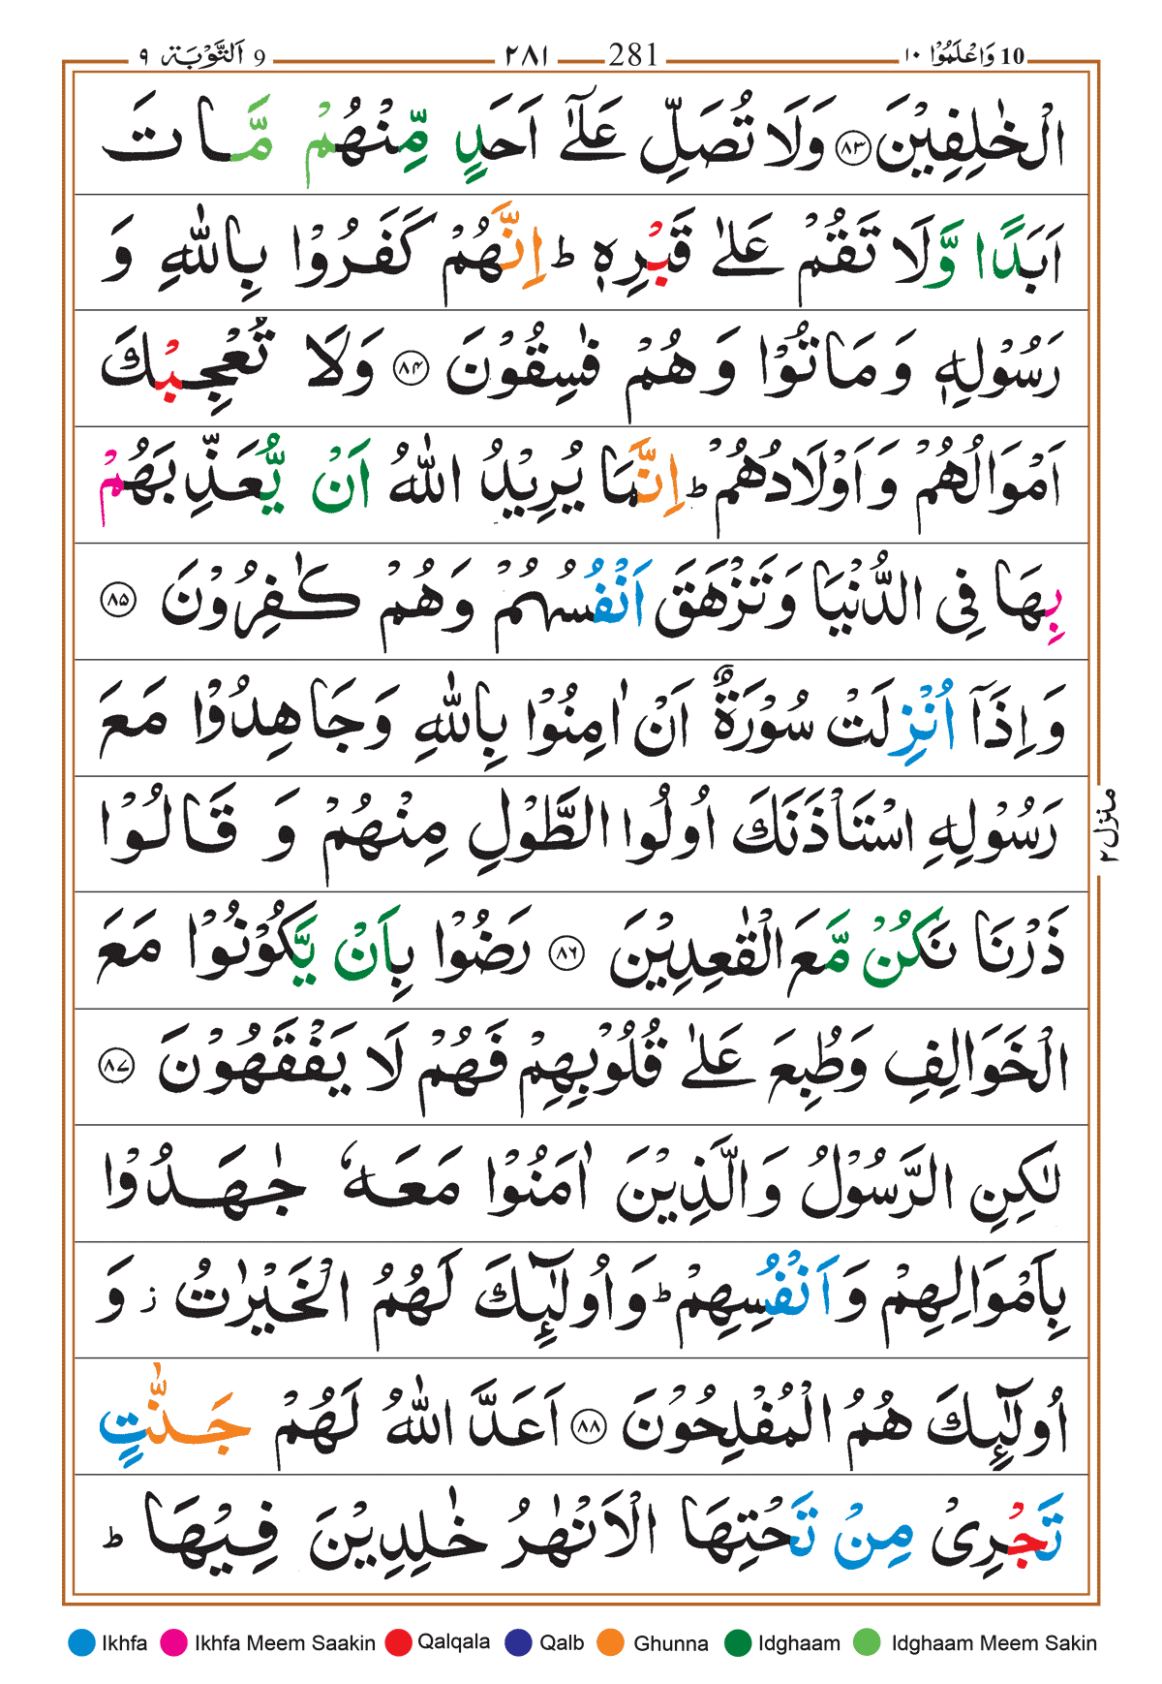 9 اَلتَّوْبَة ٩ 281 ٢٨١ 10 وَاعْلَمُوْۤا ١٠
الْخٰلِفِيْنَ ﴿٨٣﴾ وَلَا تُصَلِّ عَلٰۤى اَحَدٍ مِّنْهُمْ مَّاتَ
اَبَدًا وَّلَا تَقُمْ عَلٰى قَبْرِهٖ ؕ اِنَّهُمْ كَفَرُوْا بِاللّٰهِ وَ
رَسُوْلِهٖ وَمَاتُوْا وَهُمْ فٰسِقُوْنَ ﴿٨٤﴾ وَلَا تُعْجِبْكَ
اَمْوَالُهُمْ وَاَوْلَادُهُمْ ؕ اِنَّمَا يُرِيْدُ اللّٰهُ اَنْ يُّعَذِّبَهُمْ
بِهَا فِى الدُّنْيَا وَتَزْهَقَ اَنْفُسُهُمْ وَهُمْ كٰفِرُوْنَ ﴿٨٥﴾
وَاِذَاۤ اُنْزِلَتْ سُوْرَةٌ اَنْ اٰمِنُوْا بِاللّٰهِ وَجَاهِدُوْا مَعَ
رَسُوْلِهِ اسْتَاْذَنَكَ اُولُوا الطَّوْلِ مِنْهُمْ وَ قَالُوْا
ذَرْنَا نَكُنْ مَّعَ الْقٰعِدِيْنَ ﴿٨٦﴾ رَضُوْا بِاَنْ يَّكُوْنُوْا مَعَ
الْخَوَالِفِ وَطُبِعَ عَلٰى قُلُوْبِهِمْ فَهُمْ لَا يَفْقَهُوْنَ ﴿٨٧﴾
لٰكِنِ الرَّسُوْلُ وَالَّذِيْنَ اٰمَنُوْا مَعَهٗ جٰهَدُوْا
بِاَمْوَالِهِمْ وَاَنْفُسِهِمْ ؕ وَاُولٰٓئِكَ لَهُمُ الْخَيْرٰتُ ز وَ
اُولٰٓئِكَ هُمُ الْمُفْلِحُوْنَ ﴿٨٨﴾ اَعَدَّ اللّٰهُ لَهُمْ جَنّٰتٍ
تَجْرِىْ مِنْ تَحْتِهَا الْاَنْهٰرُ خٰلِدِيْنَ فِيْهَا ؕ
منزل ٢
Ikhfa Ikhfa Meem Saakin Qalqala Qalb Ghunna Idghaam Idghaam Meem Sakin